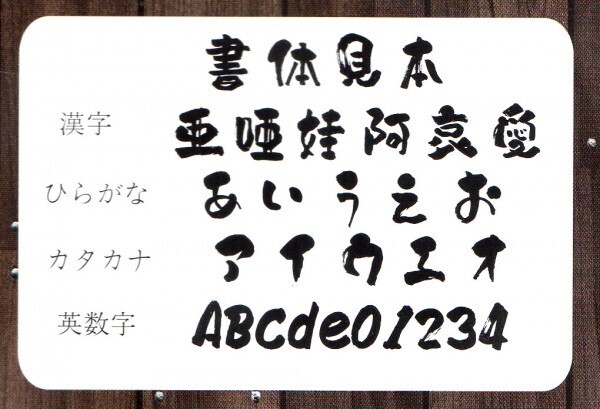 書体見本
漢字 亜唖娃阿哀愛
ひらがな あいうえお
カタカナ アイウエオ
英数字 ABCde01234